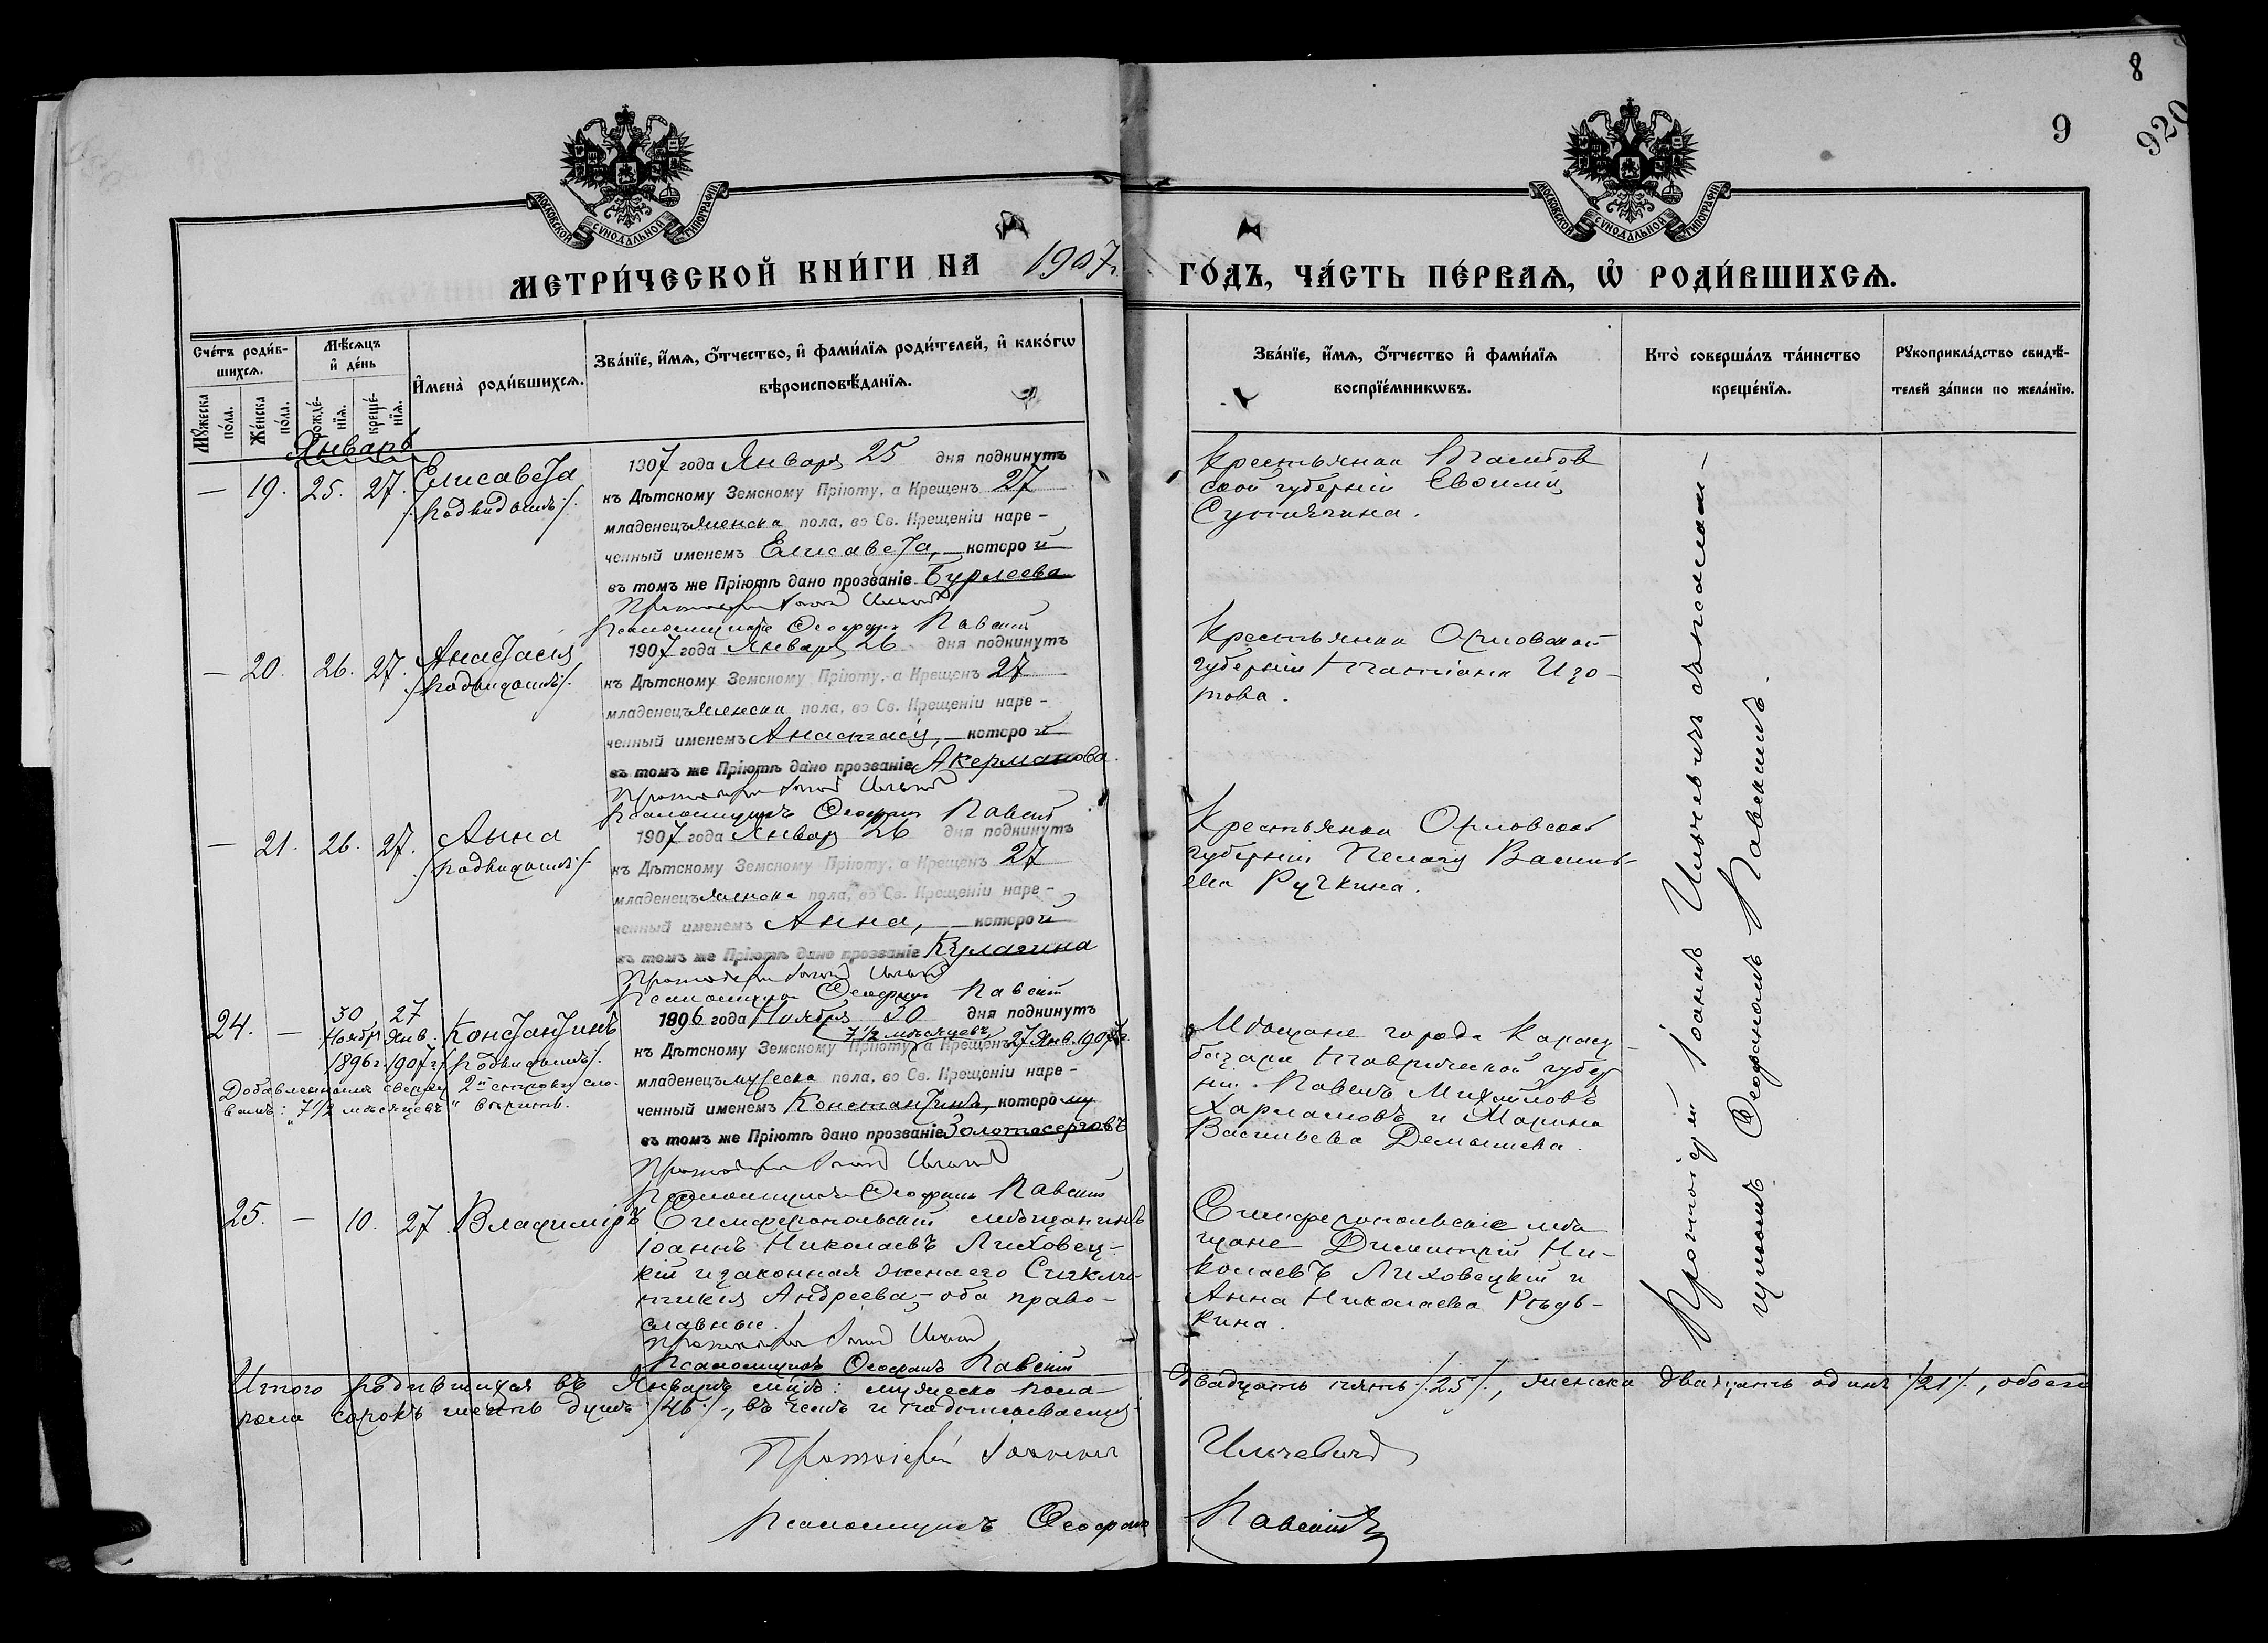 8
9
920
МОСКОВСКОЙ СѴНОДАЛЬНОЙ ТИПОГРАФІИ
МОСКОВСКОЙ СѴНОДАЛЬНОЙ ТИПОГРАФІИ
МЕТРИ́ЧЕСКОЙ КНИ́ГИ НА 1907 г. ГО́ДЪ, ЧА́СТЬ ПЕ́РВАѦ, Ѡ҆ РОДИ́ВШИХСѦ.
Сче́тъ роди́в-
шихсѧ.
Мѣ́сѧцъ
и҆ де́нь
И҆мена̀ роди́вшихсѧ.
Зва́нїе, и҆́мѧ, ѻ҆́тчество, и҆ фами́лїѧ роди́телей, и҆ како́гѡ
вѣроисповѣ́данїѧ.
Мꙋ́жеска
по́ла.
Же́нска
по́ла.
рожде́-
нїѧ.
креще́-
нїѧ.
Зва́нїе, и҆́мѧ, ѻ҆́тчество и҆ фами́лїѧ
воспрїе́мникѡвъ.
Кто̀ соверша́лъ та́инство
креще́нїѧ.
Рꙋкоприкла́дство свидѣ́-
телей за́писи по жела́нїю.
Январь
— 19. 25. 27. Елисавета
/:подкидышъ:/.
1907 года Января 25 дня подкинутъ
къ Дѣтскому Земскому Пріюту, а Крещенъ 27
младенецъ женска пола, во Св. Крещеніи наре-
ченный именемъ Елисавета, — которой
въ томъ же Пріютѣ дано прозваніе Бурлеева
Протоіерей Іоаннъ Ильчевичъ
Псаломщикъ Ѳеофанъ Павскій
Крестьянка Тамбов
ской губерніи Евфимія
— 20. 26. 27. Анастасія
/:подкидышъ:/.
1907 года Января 26 дня подкинутъ
къ Дѣтскому Земскому Пріюту, а Крещенъ 27
младенецъ женска пола, во Св. Крещеніи наре-
ченный именемъ Анастасія, — которой
въ томъ же Пріютѣ дано прозваніе Акерманова.
Протоіерей Іоаннъ Ильчевичъ
Псаломщикъ Ѳеофанъ Павскій
Крестьянка Орловской
губерніи Татіана Изо-
това.
— 21. 26. 27. Анна
/:подкидышъ:/.
1907 года Января 26 дня подкинутъ
къ Дѣтскому Земскому Пріюту, а Крещенъ 27
младенецъ женска пола, во Св. Крещеніи наре-
ченный именемъ Анна, — которой
въ томъ же Пріютѣ дано прозваніе Кулагина
Протоіерей Іоаннъ Ильчевичъ
Псаломщикъ Ѳеофанъ Павскій
Крестьянка Орловской
губерніи Пелагія Василь-
ева Ручкина.
24. — 30 Ноября 1896 г. 27 Янв. 1907 г. Константинъ
/:подкидышъ:/.
Добавленнымъ сверху 2й строки сло-
вамъ: "7 1/2 мѣсяцевъ" вѣрить.
1896 года Ноября 30 дня подкинутъ
7 1/2 мѣсяцевъ
къ Дѣтскому Земскому Пріюту, а Крещенъ 27 Янв. 1907 г.
младенецъ мужеска пола, во Св. Крещеніи наре-
ченный именемъ Константинъ, которому
въ томъ же Пріютѣ дано прозваніе Золотосерговъ
Протоіерей Іоаннъ Ильчевичъ
Псаломщикъ Ѳеофанъ Павскій
Мѣщане города Карасу-
базара Таврической губер
ніи. Павелъ Михайловъ
Харламовъ и Марина
Васильева Демышева.
25. — 10. 27. Владиміръ
Симферопольскій мѣщанинъ
Іоаннъ Николаевъ Лиховец-
кій и законная жена его
Андреева, — оба право-
славные.
Протоіерей Іоаннъ Ильчевичъ
Псаломщикъ Ѳеофанъ Павскій
Симферопольскіе мѣ
щане Димитрій Ни-
колаевъ Лиховецкій и
Анна Николаева Рѣдь-
кина.
Протоіерей Іоаннъ Ильчевичъ съ псалом —
щикомъ Ѳеофаномъ Павскимъ.
Итого родившихся въ Январѣ мцѣ: мужеска пола двадцать пять /:25:/, женска двадцать одинъ /:21:/, обоего
пола сорокъ шесть душъ /:46:/, въ чемъ и подписываемся
Протоіерей Іоаннъ Ильчевичъ
Псаломщикъ Ѳеофанъ Павскій